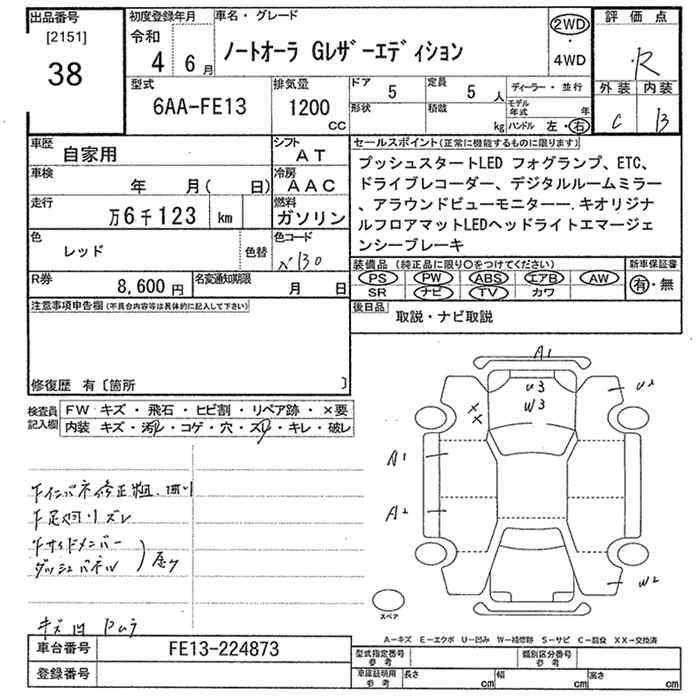 出品番号
[2151]
38
初度登録年月
令和
4 6月
車名・グレード
ノートオーラ Gレザーエディション
2WD
・
4WD
評価点
R
外装 内装
C B
型式
6AA-FE13
排気量
1200
CC
ドア 5
定員 5 人
形状
積載 kg
ディーラー・並行
モデル年式 年
ハンドル 左・右
車歴
自家用
シフト
AT
車検
年 月( 日)
冷房
AAC
走行
万6千123 km
燃料
ガソリン
色
レッド
色替
色コード
R券
8,600円
名変通知期限
月 日
セールスポイント(正常に機能するものに限ります)
プッシュスタートLED フォグランプ、ETC、
ドライブレコーダー、デジタルルームミラー
、アラウンドビューモニター一.キオリジナ
ルフロアマットLEDヘッドライトエマージェ
ンシーブレーキ
装備品 (純正品に限り○をつけてください)
PS PW ABS エアB AW
SR ナビ TV カワ
新車保証書
有・無
後日品
取説・ナビ取説
注意事項申告欄 (不具合内容等は具体的に記入して下さい)
修復歴 有〔箇所 〕
検査員
記入欄
FW キズ・飛石・ヒビ割・リペア跡・×要
内装 キズ・汚レ・コゲ・穴・スレ・キレ・破レ
A1
U3
W3
U2
××
A1
A2
W2
スペア
A−キズ E−エクボ U−凹み W−補修跡 S−サビ C−腐食 XX−交換済
車台番号
FE13-224873
登録番号
型式指定番号
参考
類別区分番号
参考
車庫証明用
参考
長さ cm
幅 cm
高さ cm